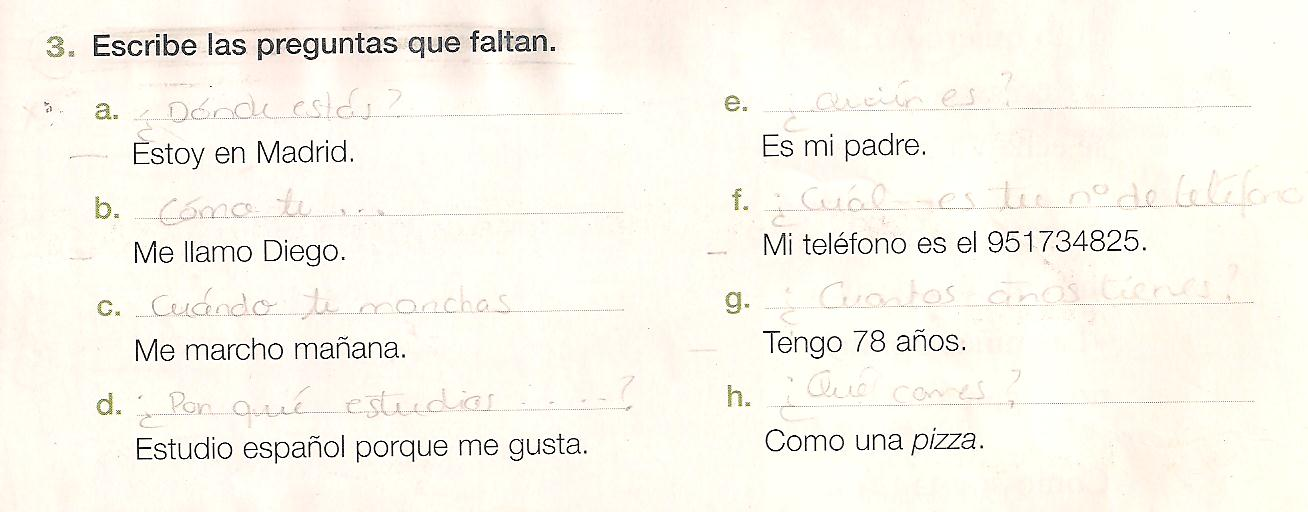 3. Escribe las preguntas que faltan.
a. ¿Dónde estás?
Estoy en Madrid.
b. Cómo te ...
Me llamo Diego.
c. Cuándo te marchas
Me marcho mañana.
d. ¿Por qué estudias .....?
Estudio español porque me gusta.
e. ¿Quién es?
Es mi padre.
f. ¿Cuál es tu nº de teléfono
Mi teléfono es el 951734825.
g. ¿Cuantos años tienes?
Tengo 78 años.
h. ¿Qué comes?
Como una pizza.